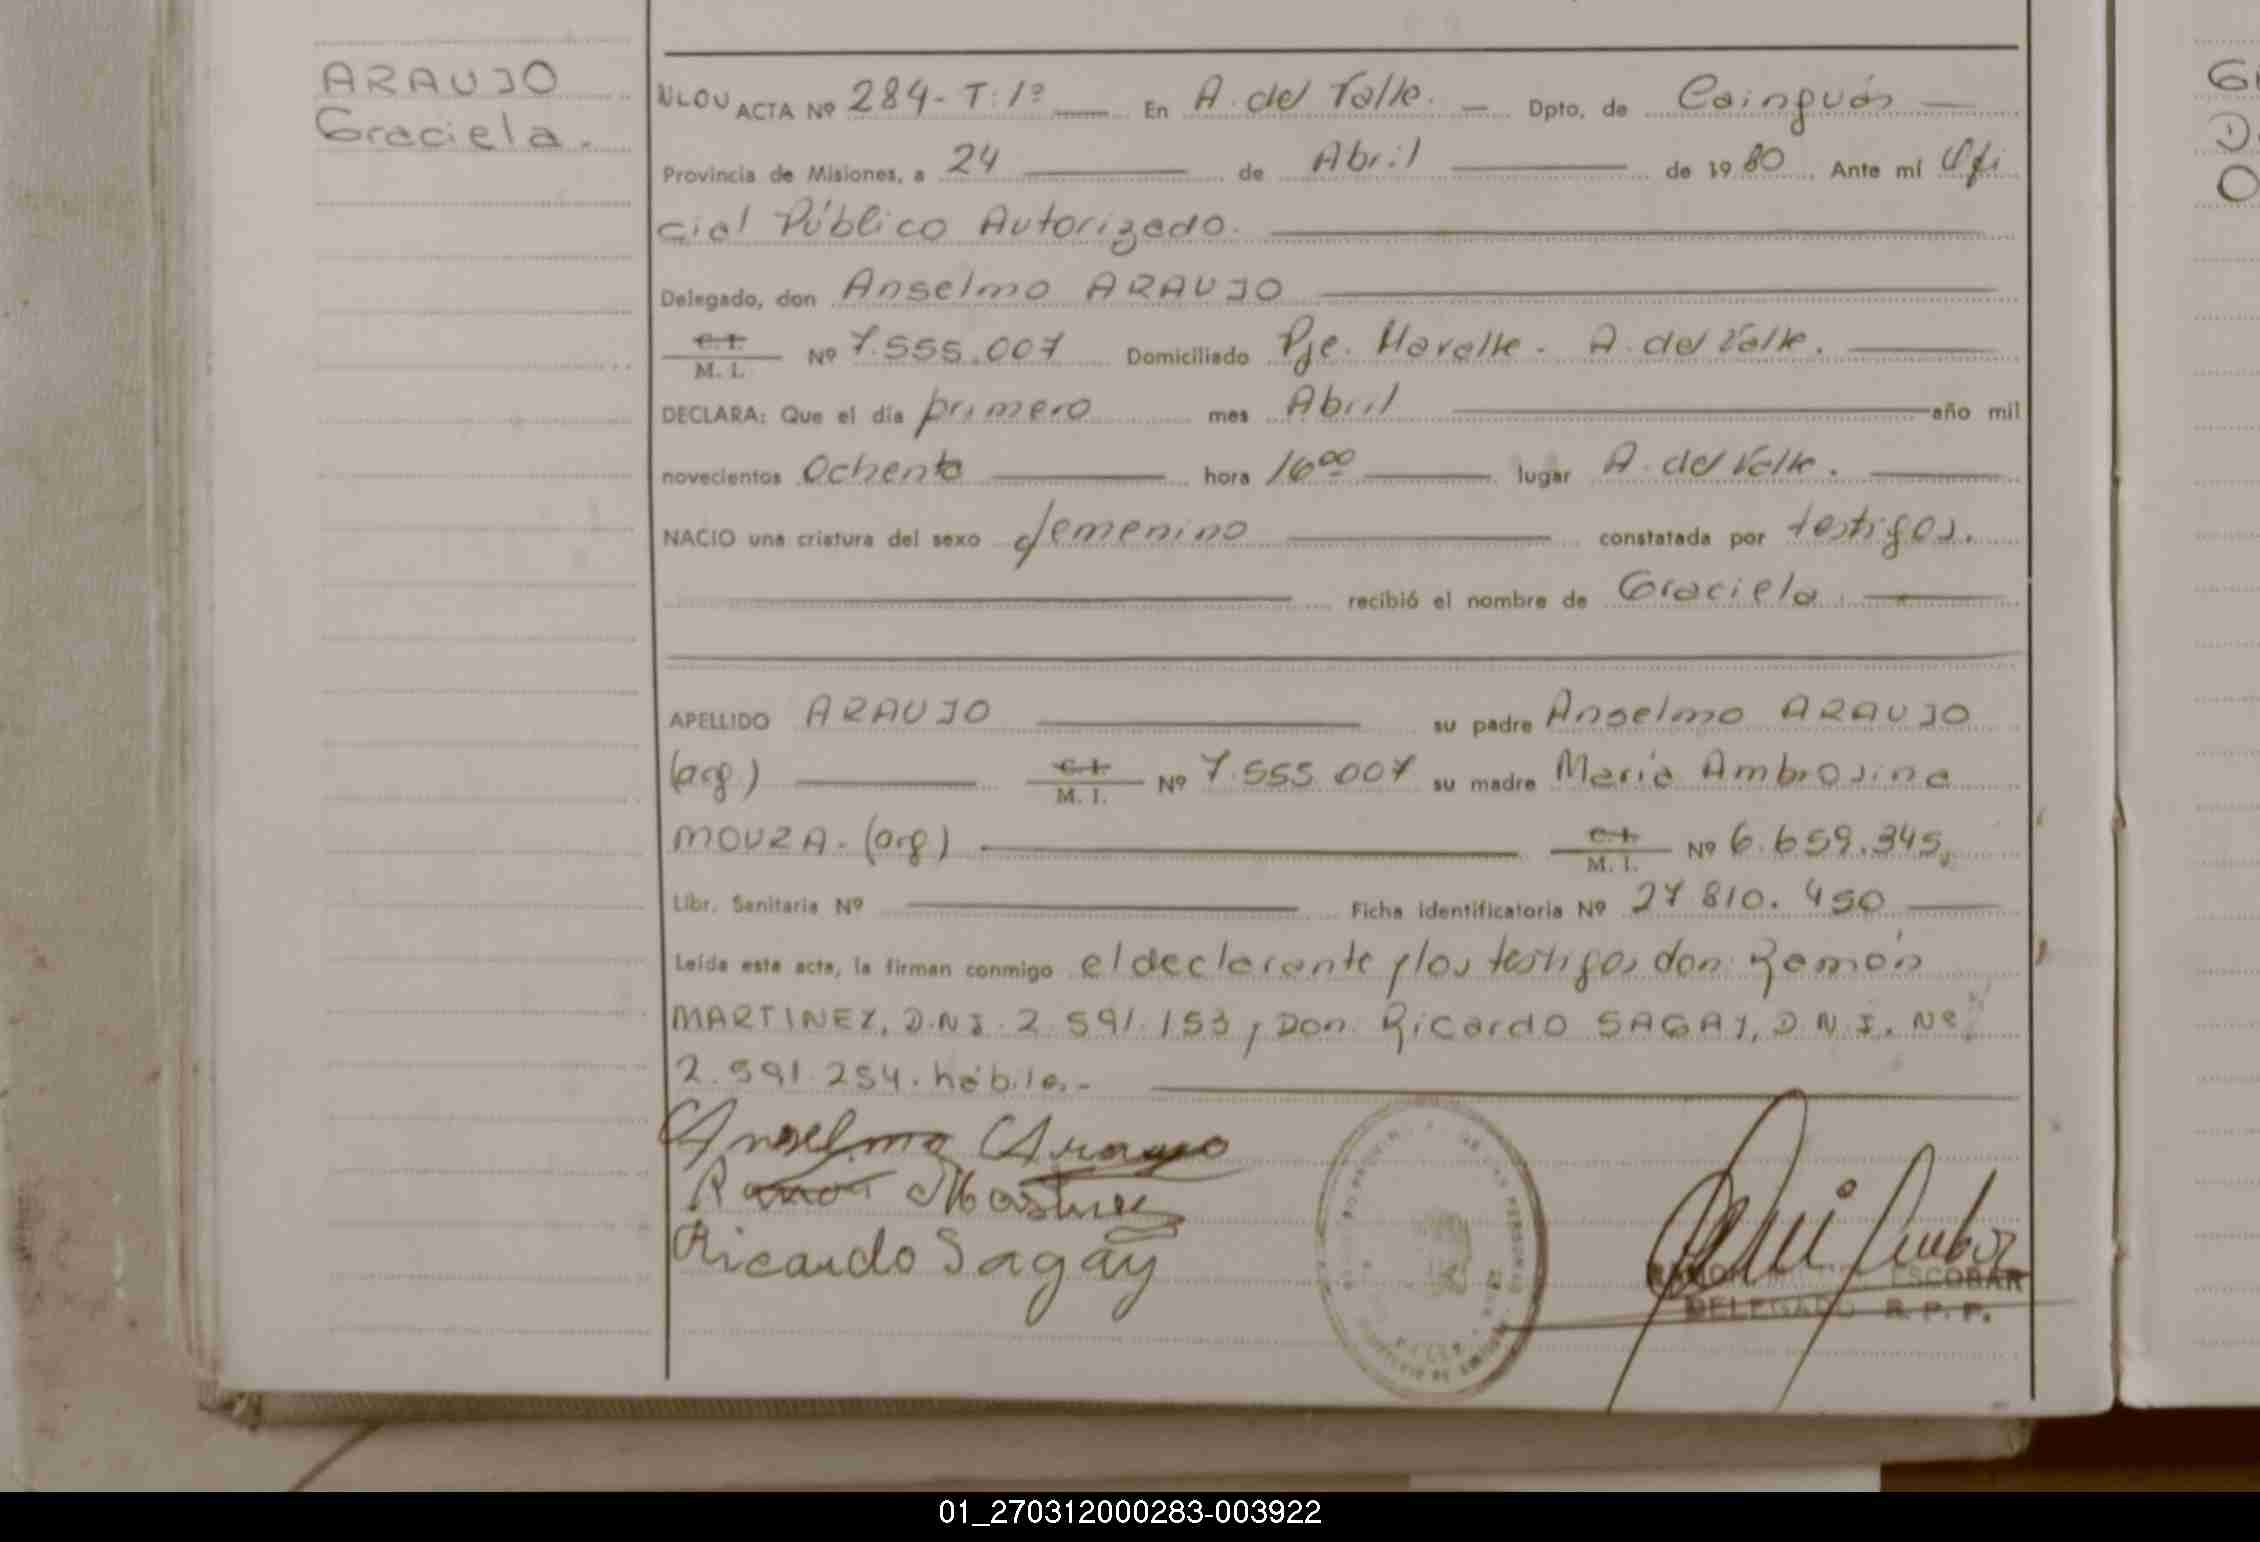 ARAUJO
Graciela.
ACTA Nº 284- T: 1º En A. del Valle. Dpto. de Cainguás
Provincia de Misiones, a 24 de Abril de 1980 Ante mí Ofi
cial Público Autorizado.
Delegado, don Anselmo ARAUJO
C.I.
M. I. Nº 7.555.007 Domiciliado Pje. A. del Valle.
DECLARA: Que el día primero mes Abril año mil
novecientos Ochenta hora 16ºº lugar A. del Valle.
NACIO una criatura del sexo femenino constatada por testigos.
recibió el nombre de Graciela.
APELLIDO ARAUJO su padre Anselmo ARAUJO
(arg) C.I.
M. I. Nº 7.555.007 su madre María Ambrosina
MOURA. (arg) C.I.
M. I. Nº 6.659.345,
Libr. Sanitaria Nº Ficha identificatoria Nº 27 810. 450
Leída esta acta, la firman conmigo el declarante y los testigos don Ramón
MARTINEZ, D.N.I. 2.591.153, Don Ricardo SAGAY, D.N.I. Nº
2.591.254. hábiles.-
Anselmo Araujo
Ramon Martinez
Ricardo Sagay
RAMON ESCOBAR
DELEGADO R. P. P.
G
D
O
01_270312000283-003922